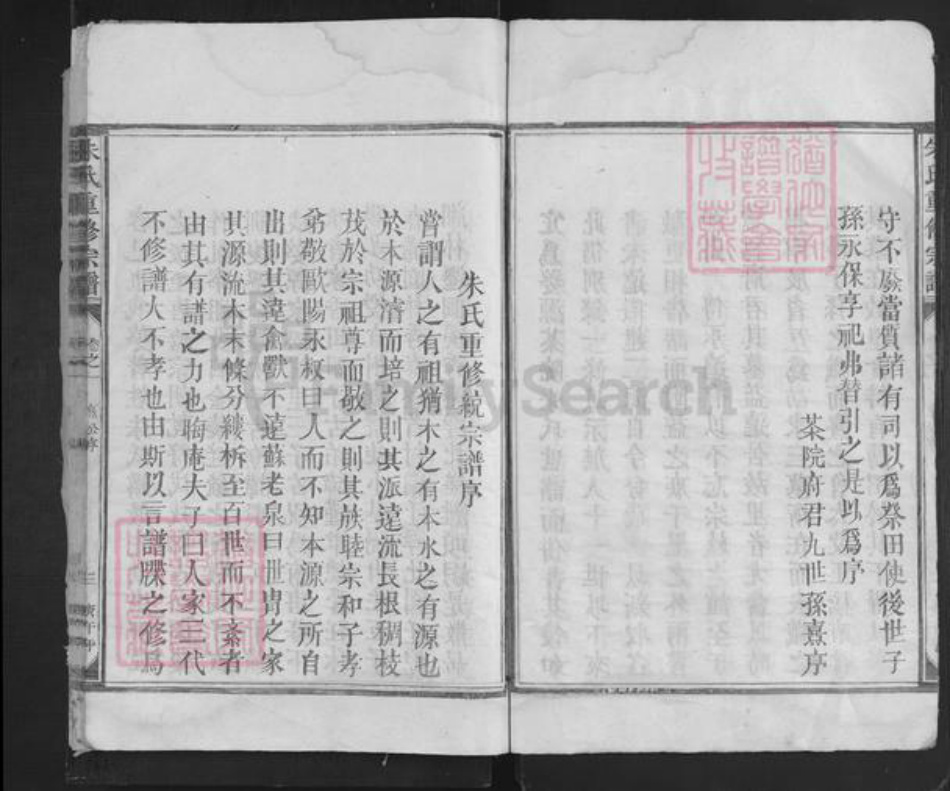 守不廢當質諸有司以爲祭田使後世子
孫永保享祀弗替引之是以爲序
茶院府君九世孫熹序
朱氏重修統宗譜序
嘗謂人之有祖猶木之有本水之有源也
於木源濬而培之則其派遠流長根稠枝
茂於宗祖尊而敬之則其族睦宗和子孝
弟敬歐陽永叔曰人而不知本源之所自
出則其違禽獸不遠蘇老泉曰世冑之家
其源流本末條分縷柝至百世而不紊者
由其有譜之力也晦庵夫子曰人家三代
不修譜大不孝也由斯以言譜牒之修爲
朱氏重修宗譜
卷之一
三
FamilySearch